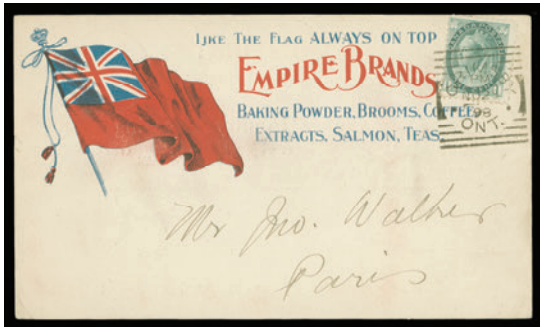 LIKE THE FLAG ALWAYS ON TOP
EMPIRE BRANDS
BAKING POWDER, BROOMS, COFFEE,
EXTRACTS, SALMON, TEAS.
98
ONT.
Mr Jno. Walker
Paris